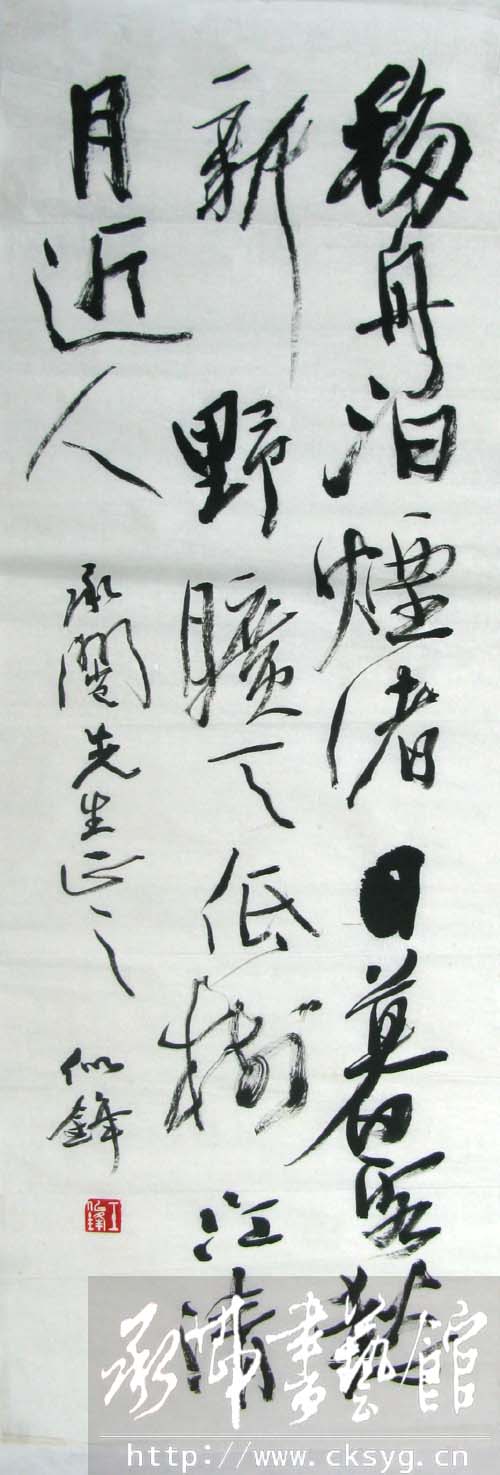 移舟泊煙渚日暮客愁
新野曠天低樹江清
月近人
承闓先生正之
似鋒
書藝館
http://www.cksyg.cn